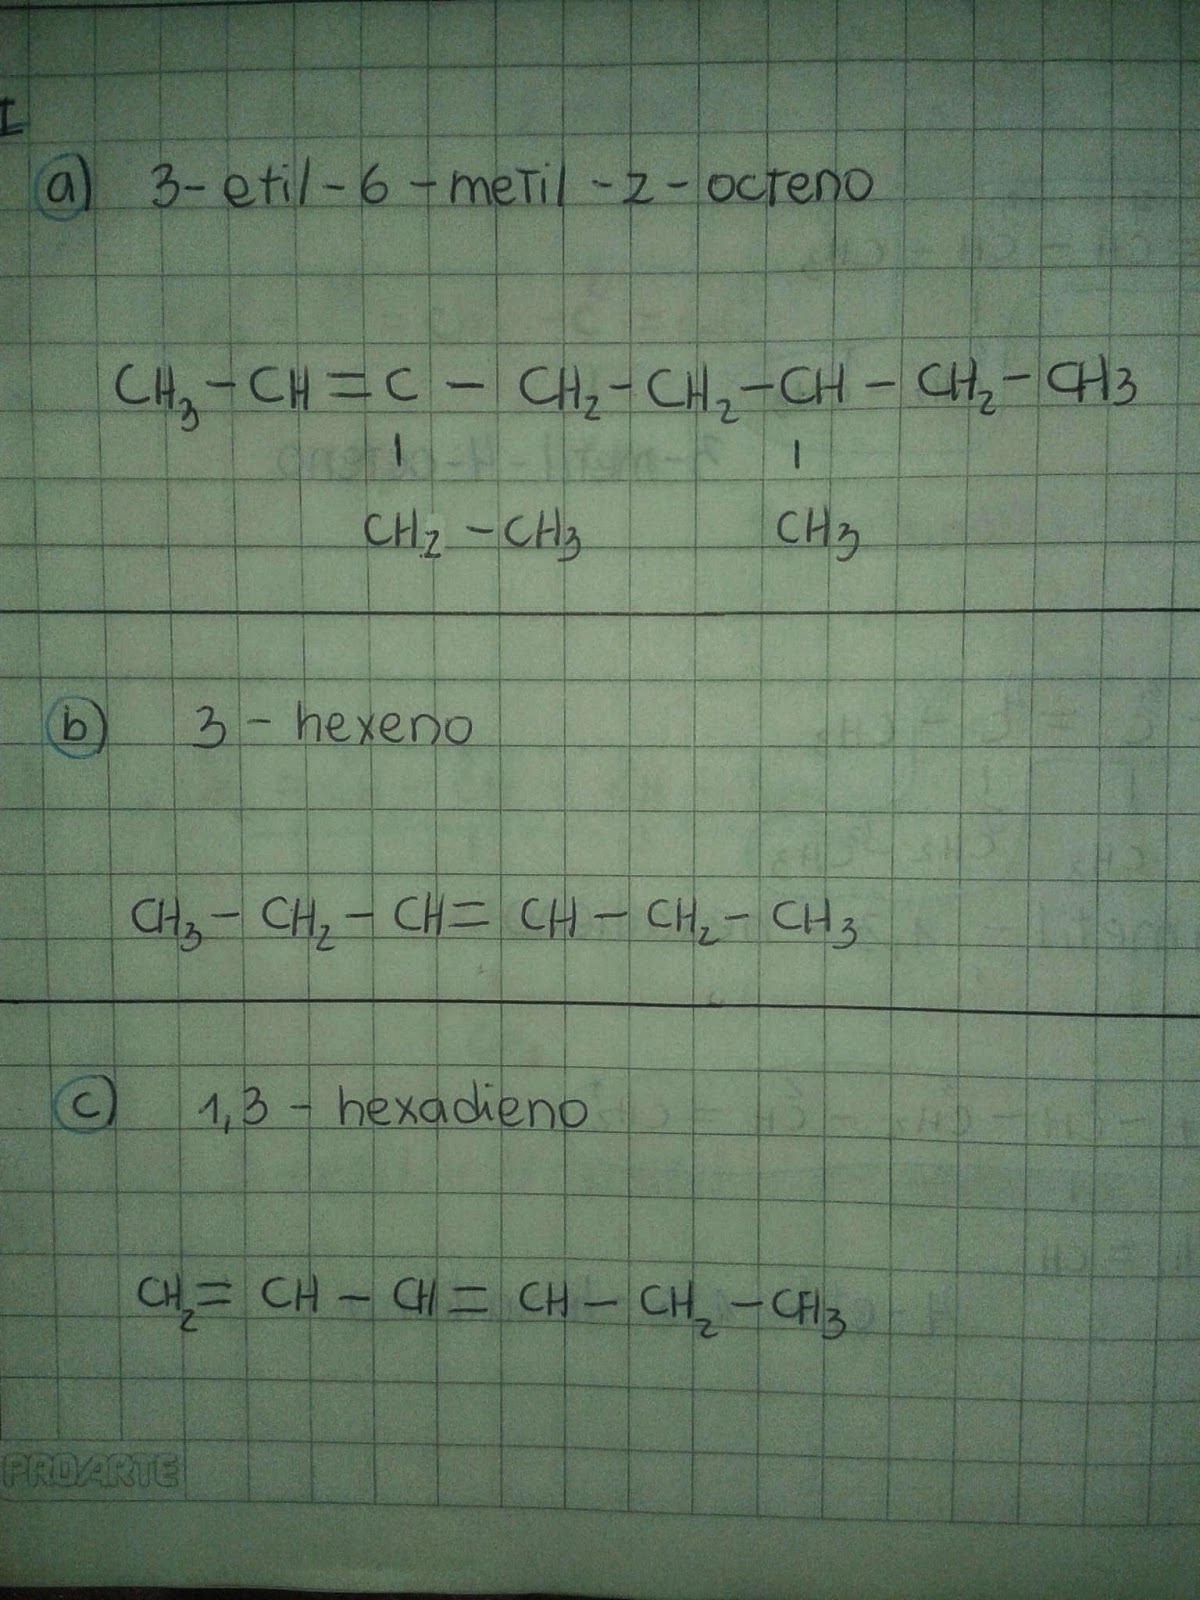 I
a) 3-etil-6-metil-2-octeno
CH₃-CH=C-CH₂-CH₂-CH-CH₂-CH3
CH₂-CH3 CH3
b) 3-hexeno
CH₃-CH₂-CH=CH-CH₂-CH3
c) 1,3-hexadieno
CH₂=CH-CH=CH-CH₂-CH3
PROARTE